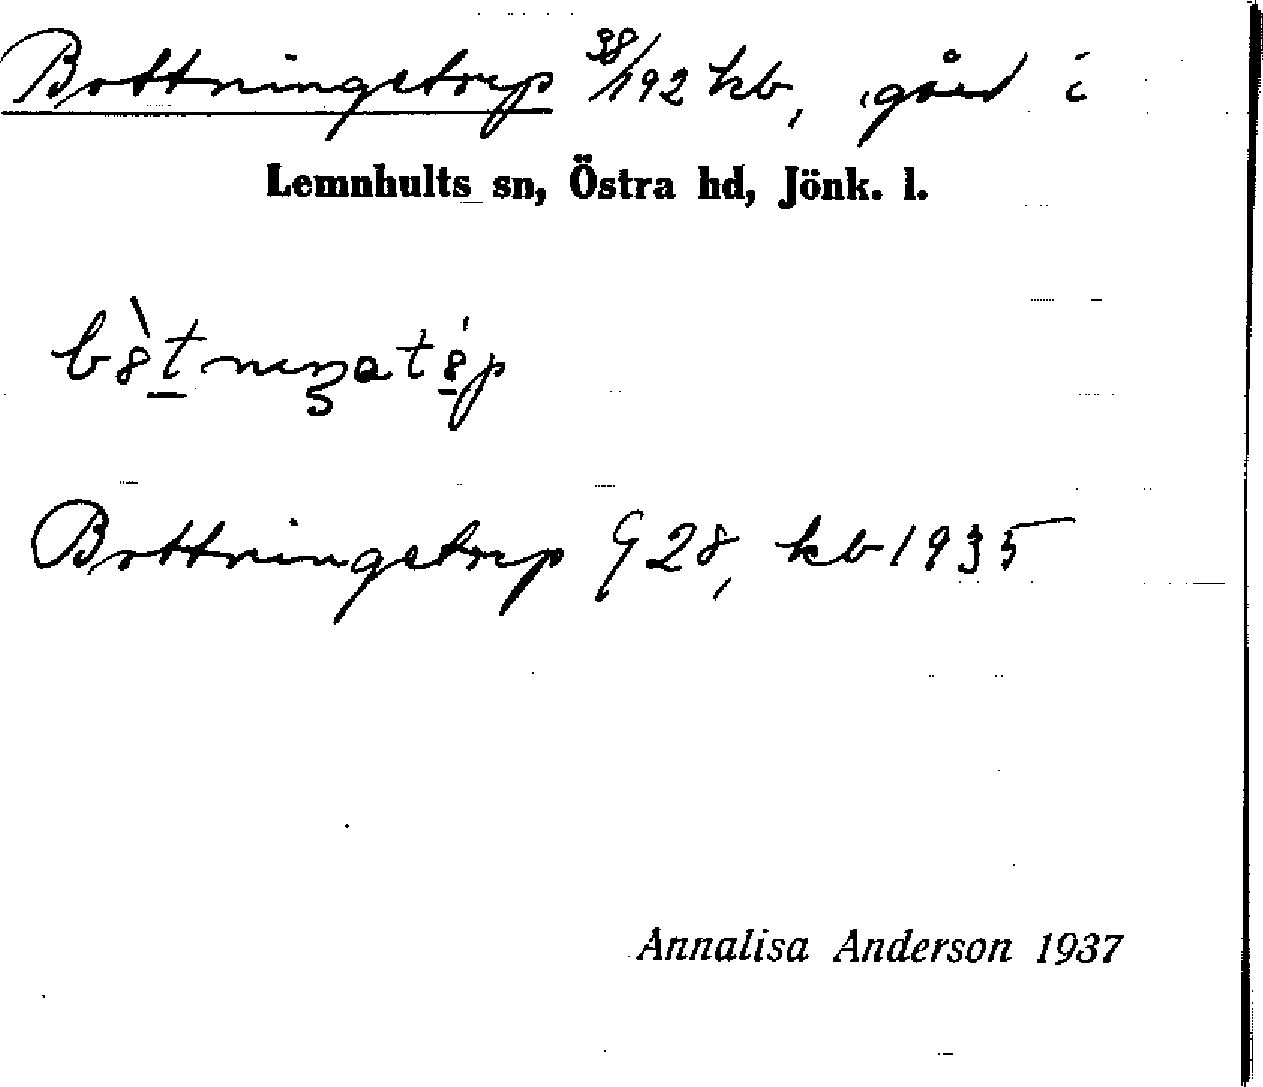 Bottningstorp 38/192 kb, gård i
Lemnhults sn, Östra hd, Jönk. l.
Bottningstorp G 28, kb 1935
Annalisa Anderson 1937